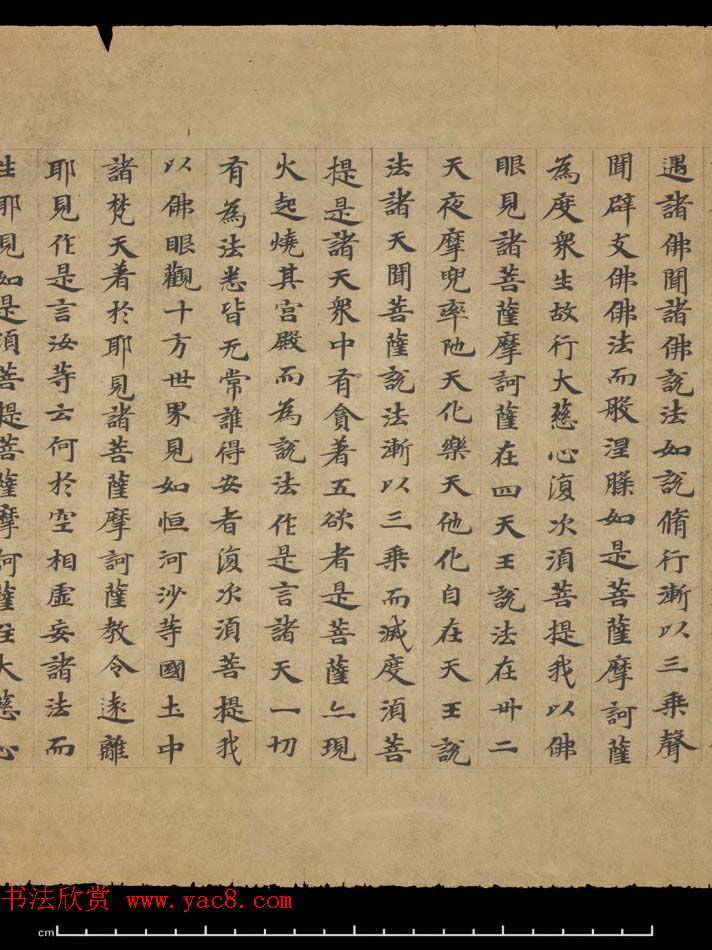 遇諸佛聞諸佛說法如說脩行漸以三乘聲
聞辟支佛佛法而般涅槃如是菩薩摩訶薩
為度衆生故行大慈心復次須菩提我以佛
眼見諸菩薩摩訶薩在四天王說法在卅二
天夜摩兜率陁天化樂天他化自在天王說
法諸天聞菩薩說法漸以三乘而滅度須菩
提是諸天衆中有貪著五欲者是菩薩亦現
火起燒其宮殿而為說法作是言諸天一切
有為法悉皆无常誰得安者復次須菩提我
以佛眼觀十方世界見如恒河沙等國土中
諸梵天著於耶見諸菩薩摩訶薩教令遠離
耶見作是言汝等云何於空相虛妄諸法而
生耶見如是須菩提菩薩摩訶薩住大慈心
书法欣赏 www.yac8.com
cm